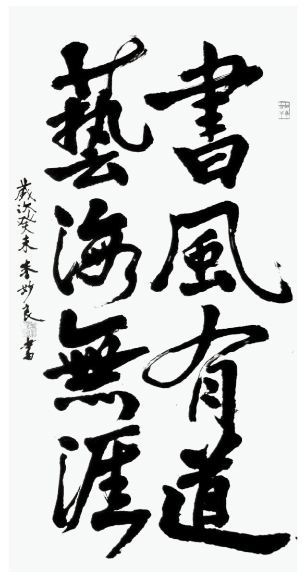 書風有道
藝海無涯
歲次癸未 朱妙良書